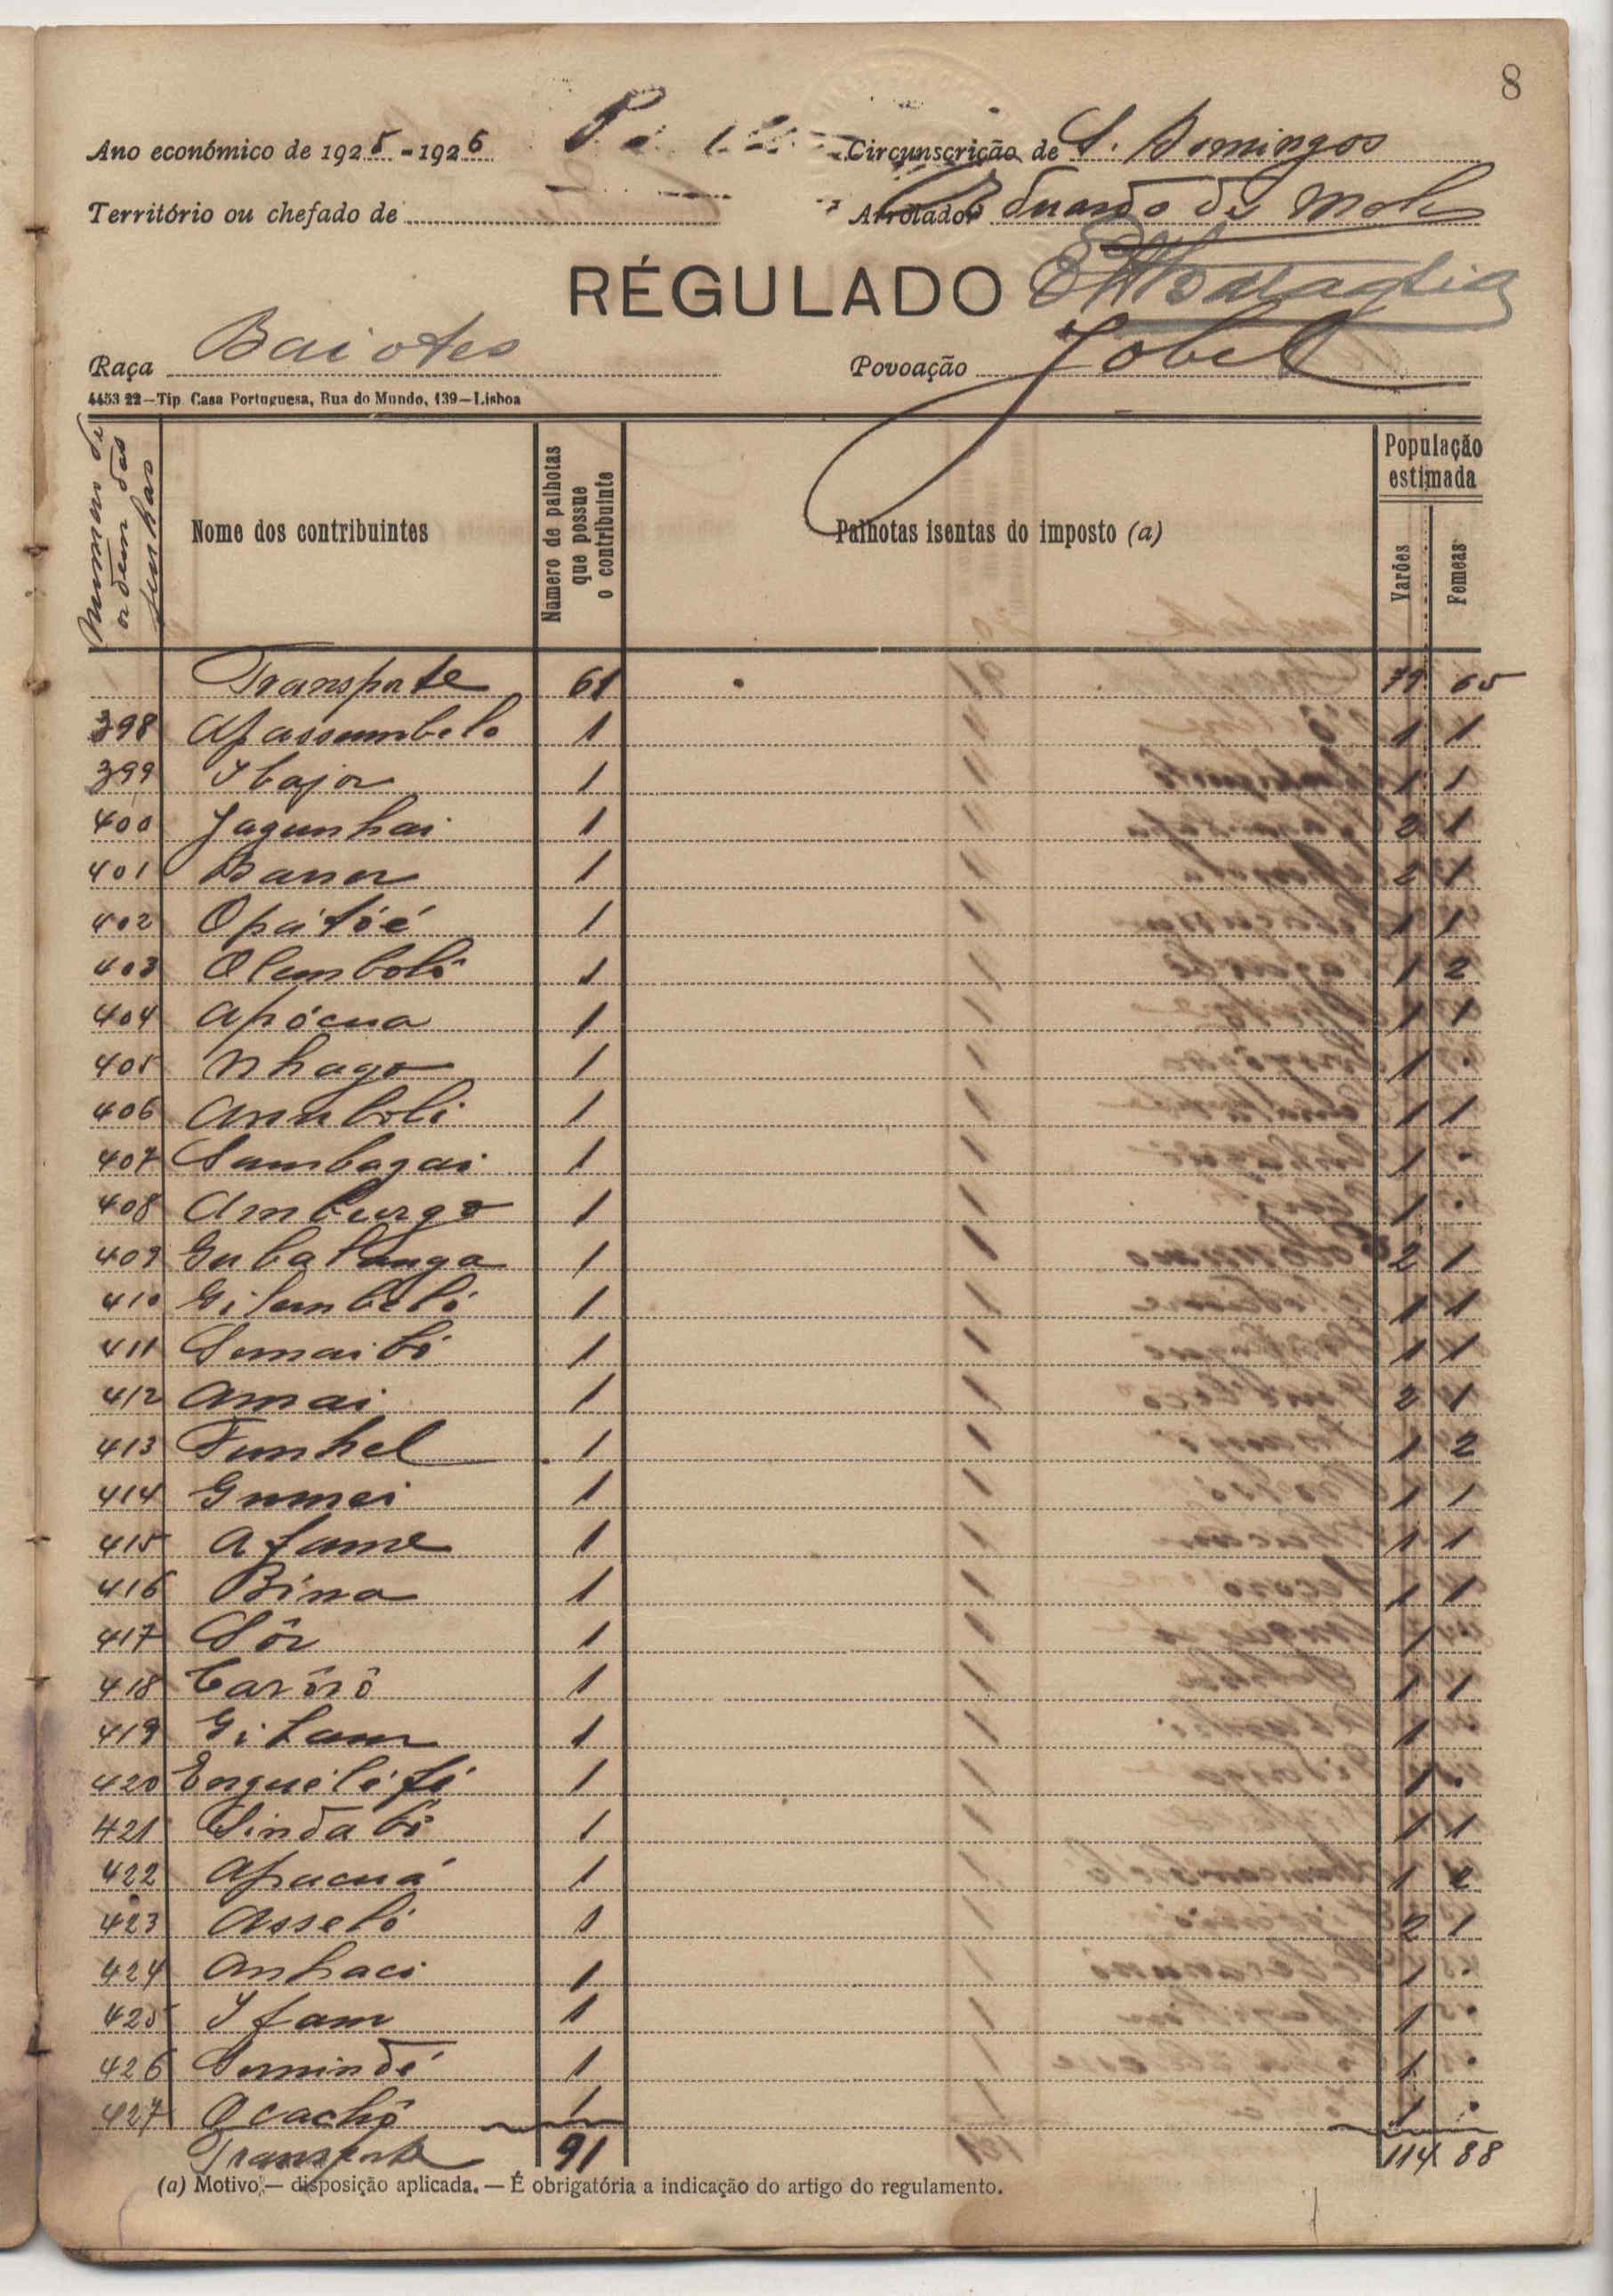 8
Ano económico de 1925-1926 Circunscrição de S. Domingos
Território ou chefado de Arrolador Eduardo de
RÉGULADO
Raça Baiotes Povoação Jobel
4453 22—Tip. Casa Portuguesa, Rua do Mundo, 139—Lisboa
Numero de ordem das senhas
Nome dos contribuintes
Número de palhotas que possue o contribuinte
Palhotas isentas do imposto (a)
População estimada
Varões Femeas
Transporte 61 79 65
398 Afassumbelo 1 1 1
399 Ibajor 1 1 1
400 Jagunhai 1 2 1
401 Baner 1 2 1
402 Opátóé 1 1 1
403 Olimboli 1 1 2
404 Apócua 1 1 1
405 Nhago 1 1 .
406 Anuboli 1 1 1
407 Sambagai 1 1 .
408 Amburgo 1 1 .
409 Gubabanga 1 2 1
410 Gilumbeló 1 1 1
411 Semaibó 1 1 1
412 Amai 1 2 1
413 Funhel 1 1 2
414 Gumei 1 1 1
415 Afame 1 1 1
416 Bina 1 1 1
417 Sôr 1 1 .
418 Carôrô 1 1 1
419 Gifam 1 1 .
420 Enguéléfé 1 1 .
421 Sindabô 1 1 1
422 Apacuá 1 1 2
423 Asseló 1 2 1
424 Anhaci 1 1 .
425 Ifam 1 1 .
426 Semindé 1 1 .
427 Ocachô 1 1 .
Transporte 91 114 88
(a) Motivo;— disposição aplicada.— É obrigatória a indicação do artigo do regulamento.